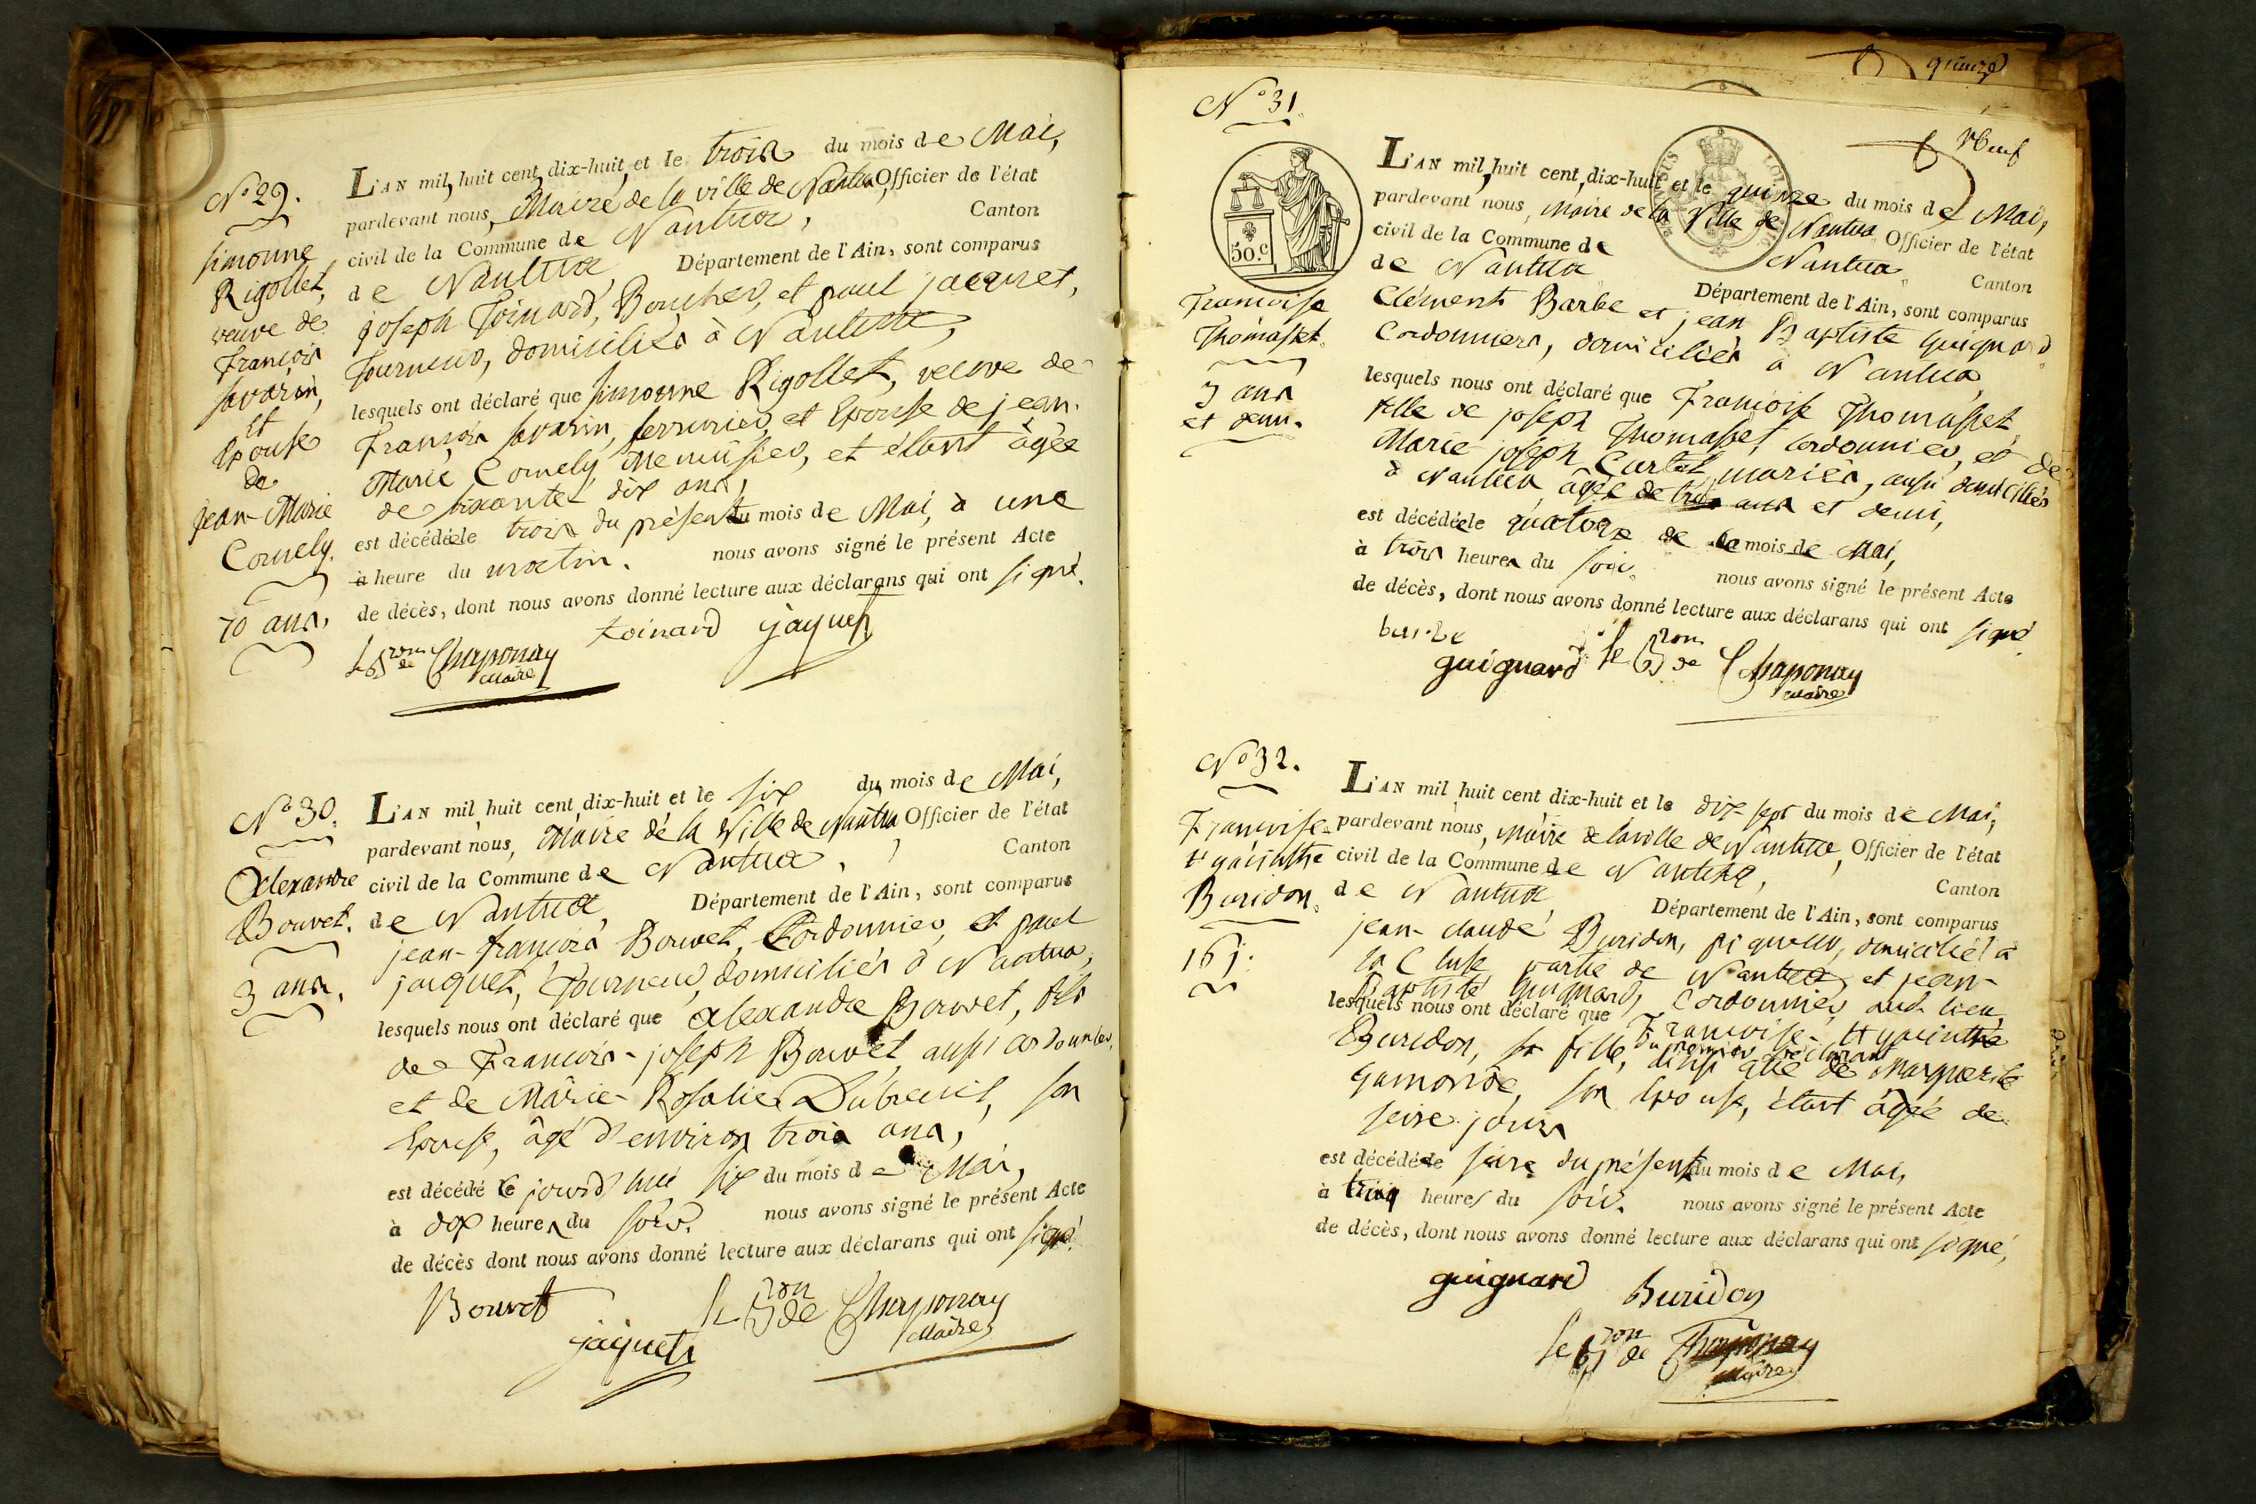 N.° 29.
Simonne
Rigollet,
veuve de
François
Savarin,
et
Epouse
de
Jean-Marie
Cornely.
70 ans.
L'AN mil huit cent dix-huit et le trois du mois de Mai,
pardevant nous, Maire de la ville de Nantua, Officier de l'état
civil de la Commune de Nantua, Canton
de Nantua Département de l'Ain, sont comparus
joseph Toinard, Boucher, et paul jacquet,
Tourneur, domiciliés à Nantua,
lesquels ont déclaré que Simonne Rigollet, veuve de
François Savarin, serrurier, et Epouse de jean-
Marie Cornely, Menuisier, et étant âgée
de soixante dix ans,
est décédée le trois du présent du mois de Mai, à une
à heure du matin. nous avons signé le présent Acte
de décès, dont nous avons donné lecture aux déclarans qui ont signé.
toinard jaquet
le Bron de Chaponay
Maire
N.° 30.
Alexandre
Bouvet.
3 ans.
L'AN mil huit cent dix-huit et le six du mois de Mai,
pardevant nous, Maire de la Ville de Nantua Officier de l'état
civil de la Commune de Nantua, Canton
de Nantua, Département de l'Ain, sont comparus
jean-françois Bouvet, Cordonnier, et paul
jacquet, Tourneur, domiciliés à Nantua,
lesquels nous ont déclaré que alexandre Bouvet, fils
de François-joseph Bouvet, aussi cordonnier,
et de Marie-Rosalie Dubreuil, son
Epouse, âgé d'environ trois ans,
est décédé le jourd'hui six du mois de Mai,
à dix heures du soir. nous avons signé le présent Acte
de décès dont nous avons donné lecture aux déclarans qui ont signé.
Bouvet le Bron de Chaponay
jaquet Maire
quinze
N.° 31.
neuf
50.c
Francoise
Thomasset.
3 ans
et demi.
L'AN mil huit cent dix-huit et le quinze du mois de Mai,
pardevant nous, Maire de la Ville de Nantua Officier de l'état
civil de la Commune de Nantua Canton
de Nantua Département de l'Ain, sont comparus
Clément Barbe et jean Baptiste Guignard,
Cordonniers, domiciliés à Nantua,
lesquels nous ont déclaré que Francoise Thomasset,
fille de joseph Thomasset, cordonnier, et de
Marie joseph Curtet, mariés, aussi domiciliés
à Nantua, âgée de trois ans et demi,
est décédée le quatorze de ce mois de Mai,
à trois heures du soir. nous avons signé le présent Acte
de décès, dont nous avons donné lecture aux déclarans qui ont signé.
barbe
guignard le Bron de Chaponay
Maire
N.° 32.
Francoise-
Hyacinthe
Buridon.
16 j.
L'AN mil huit cent dix-huit et le dix-sept du mois de Mai,
pardevant nous, Maire de la ville de Nantua, Officier de l'état
civil de la Commune de Nantua, Canton
de Nantua Département de l'Ain, sont comparus
jean-claude Buridon, domicilié à
la Cluse, partie de Nantua, et jean-
Baptiste Guignard, Cordonnier, aud. lieu,
lesquels nous ont déclaré que Francoise-Hyacinthe
Buridon, sa fille, du premier déclarant ainsi que de Marguerite
Gamonde, son Epouse, étant âgée de
seize jours
est décédée le seize du présent du mois de Mai,
à cinq heures du soir. nous avons signé le présent Acte
de décès, dont nous avons donné lecture aux déclarans qui ont signé,
guignard Buridon
le Bron de Chaponay
Maire